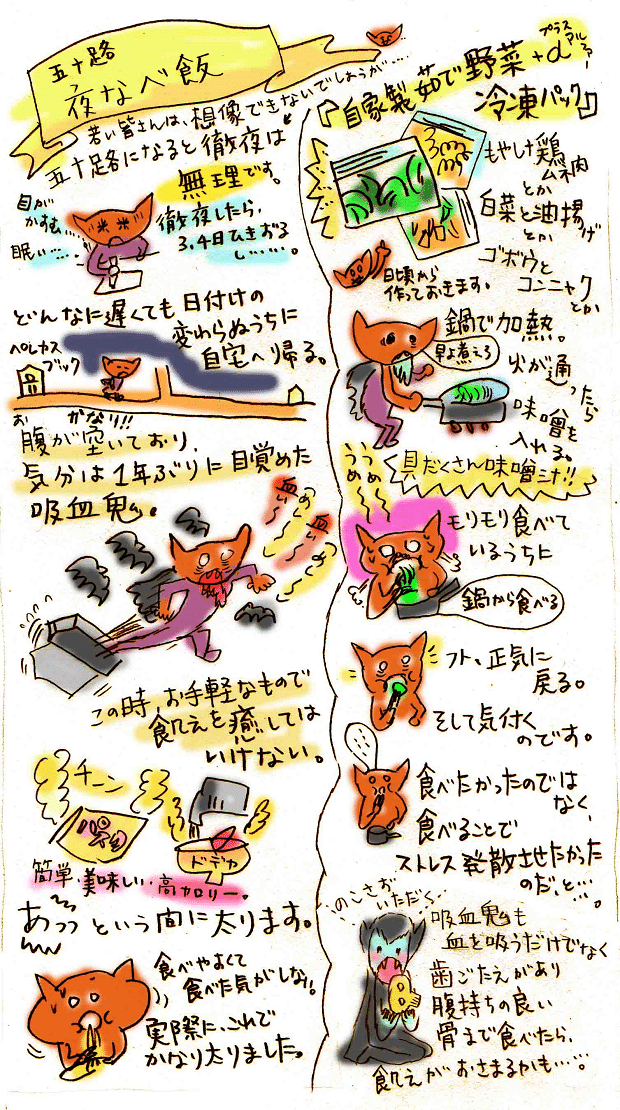 五十路
夜なべ飯
若い皆さんは、想像できないでしょうが……
五十路になると徹夜は
無理です。
目が
かすむ…
眠い……
徹夜したら、
3,4日ひきずる
し……。
どんなに遅くても日付けの
変わらぬうちに
自宅へ帰る。
ペレカス
ブック
お
かなり!!
腹が空いており、
気分は1年ぶりに目覚めた
吸血鬼。
血ぃ〜
めし〜
血ぃ〜
めし〜
この時、お手軽なもので
飢えを癒しては
いけない。
チーン
パスタ
ドデカ
簡単・美味しい・高カロリー。
あっっという間に太ります。
食べやすくて
食べた気がしない。
実際に、これで
かなり太りました。
『自家製茹で野菜+α
プラス
アルファー
冷凍パック』
もやしと鶏
ムネ肉
とか
白菜と油揚げ
とか
ゴボウと
コンニャク
とか
日頃から
作っておきます。
鍋で加熱。
早よ煮えろ
火が通ったら
味噌を
入れる。
具だくさん味噌汁!!
うめぇ〜
うめぇ〜
モリモリ食べて
いるうちに
鍋から食べる
フト、正気に
戻る。
そして気付く
のです。
食べたかったのでは
なく、
食べることで
ストレス発散させたかった
のだ、と…。
のこさず
いただく…
吸血鬼も
血を吸うだけでなく
歯ごたえがあり
腹持ちの良い
骨まで食べたら、
飢えがおさまるかも……。